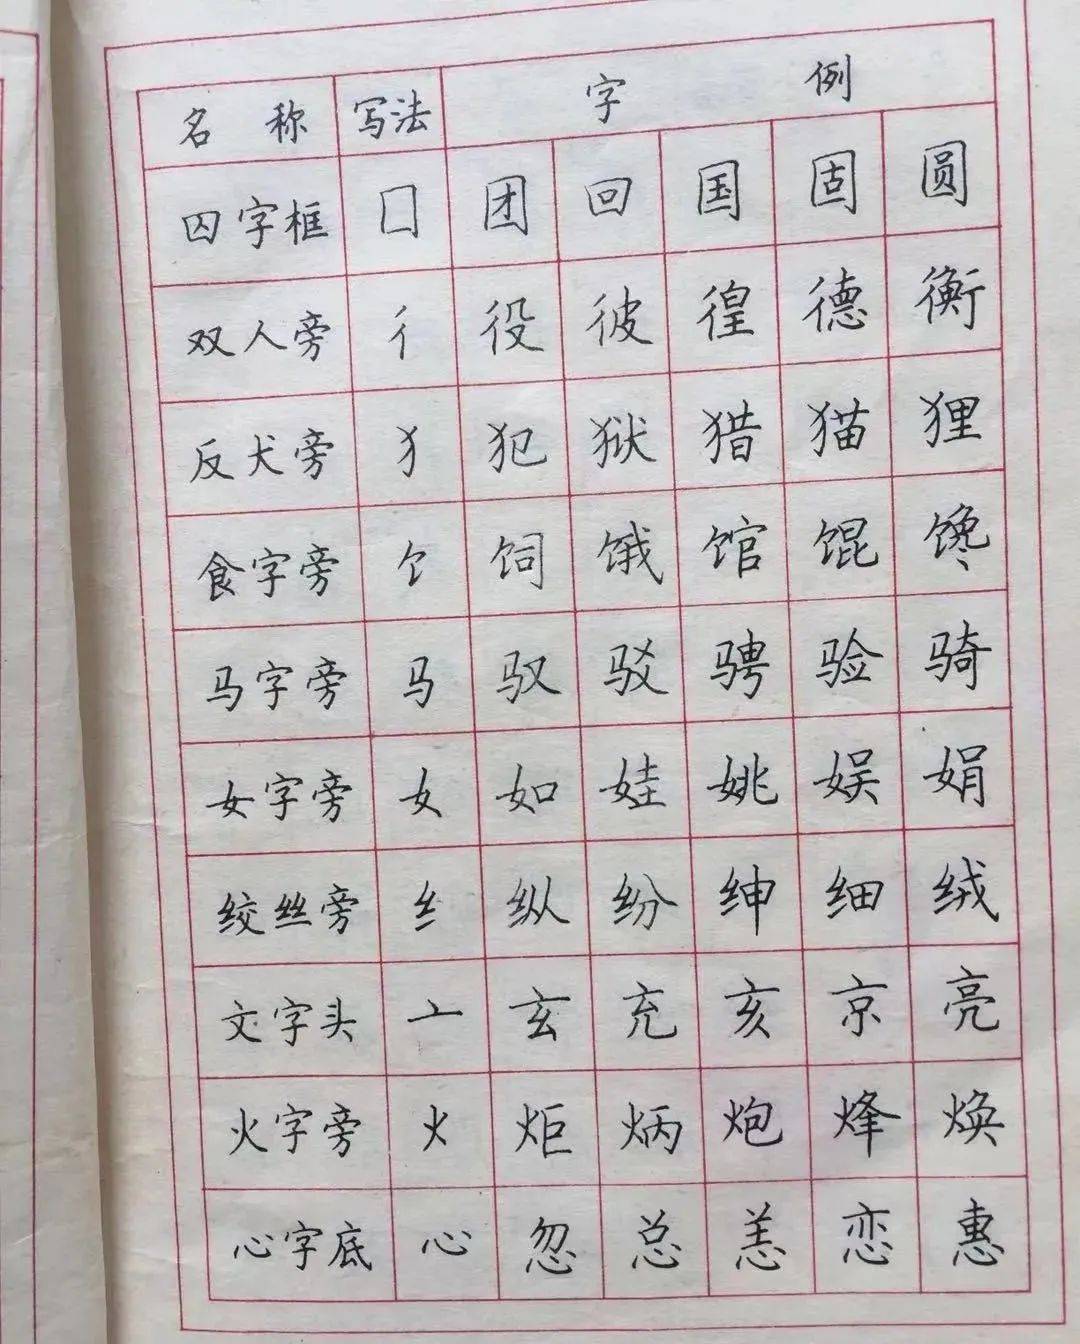 名称 写法 字例
囚字框 囗 团 回 国 固 圆
双人旁 彳 役 彼 徨 德 衡
反犬旁 犭 犯 狱 猎 猫 狸
食字旁 饣 饲 饿 馆 馄 馋
马字旁 马 驭 驳 骋 验 骑
女字旁 女 如 娃 姚 娱 娟
绞丝旁 纟 纵 纷 绅 细 绒
文字头 亠 玄 充 亥 京 亮
火字旁 火 炬 炳 炮 烽 焕
心字底 心 忽 总 恙 恋 惠